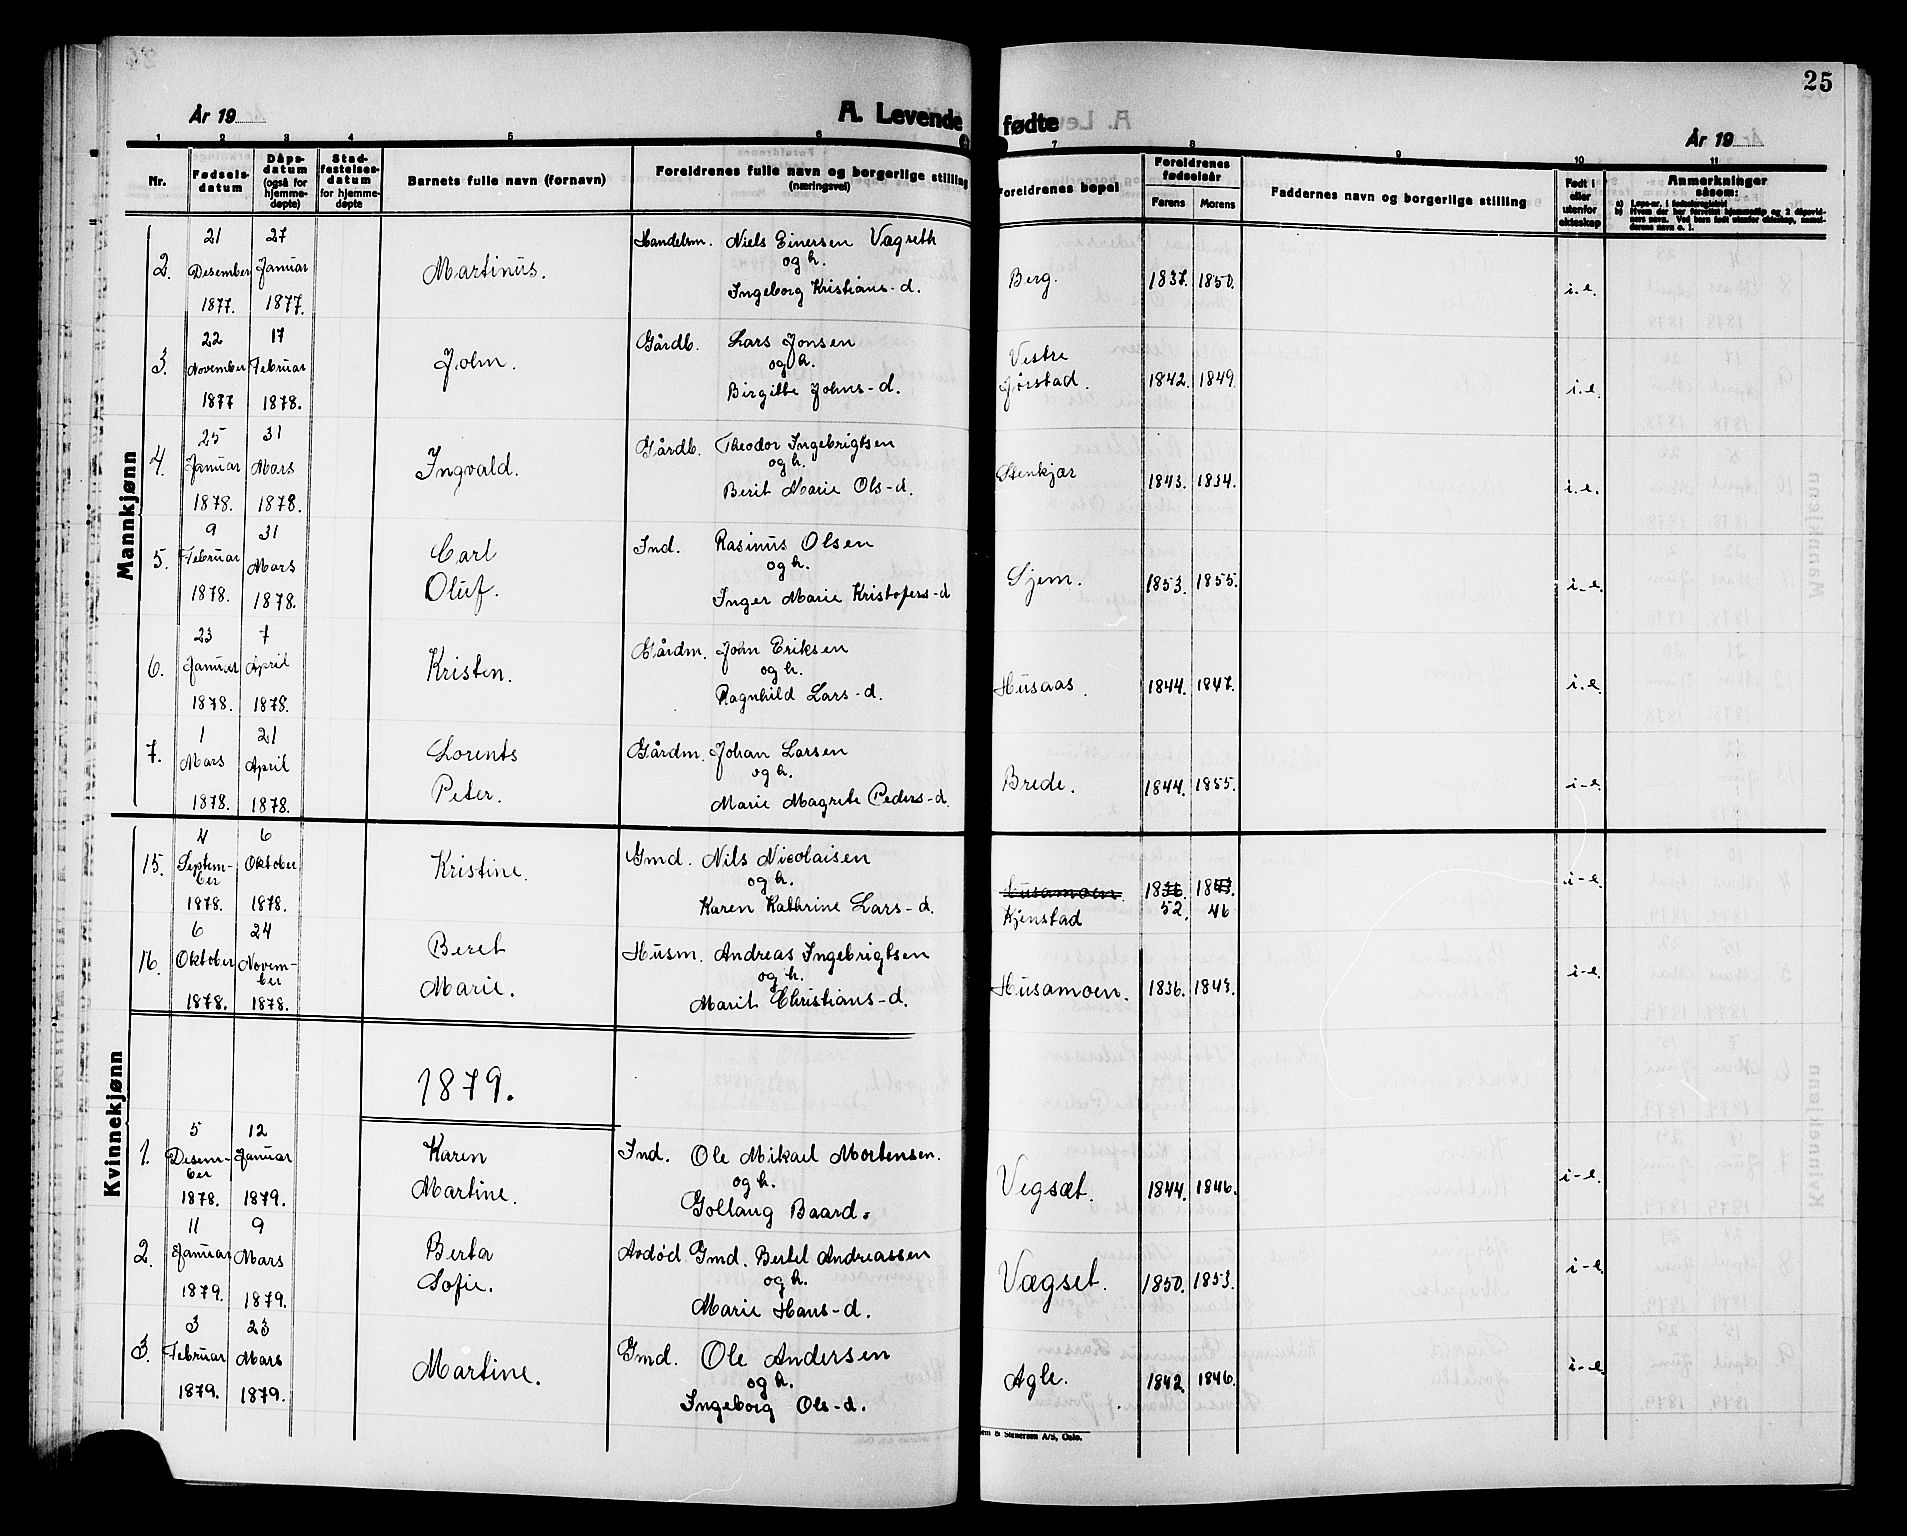 25
År 19
A. Levende fødte
År 19
1 2 3 4 5 6 7 8 9 10 11
Nr.
Fødsels-
datum
Dåps-
datum
(også for
hjemme-
døpte)
Stad-
festelses-
datum
for hjemme-
døpte
Barnets fulle navn (fornavn)
Foreldrenes fulle navn og borgerlige stilling
(næringsvei)
Foreldrenes bopel
Foreldrenes
fødselsår
Farens Morens
Faddernes navn og borgerlige stilling
Født i
eller
utenfor
ekteskap
Anmerkninger
såsom:
Mannkjønn
21 27 Handelsm. Niels Einersen Vægseth
2. Desember Januar Martinus. og h. Berg. 1837. 1850. i.e.
1877. 1877. Ingeborg Kristians-d.
22 17 Gårdb. Lars Jonsen
3. November Februar John. og h. Vestre Jørstad. 1842. 1849. i.e.
1877 1878. Birgitte Johns-d.
25 31 Gårdb. Theodor Ingebrigtsen
4. Januar Mars Ingvald. og h. Stenkjær 1843. 1834. i.e.
1878. 1878. Berit Marie Ols-d.
9 31 Carl Ind. Rasinus Olsen
5. Februar Mars Oluf. og h. Sjem. 1853. 1855. i-e.
1878. 1878. Inger Marie Kristofers-d
23 7 Gårdm. John Eriksen
6. Januar April Kristen. og h. Husaas. 1844. 1847. i.e.
1878. 1878. Ragnhild Lars-d.
1 21 Lorents Gårdm. Johan Larsen
7. Mars April Peter. og h. Brede. 1844. 1855. i-e.
1878. 1878. Marie Magrete Peders-d.
Kvinnekjønn
4 6 Gmd. Nils Nicolaisen
15. Septem-
ber Oktober Kristine. og h. Husamoen. 1836. 1843. i-e.
1878. 1878. Karen Kathrine Lars-d. Kjenstad 52. 46
6 24 Beret Husm. Andreas Ingebrigtsen
16. Oktober Novem-
ber Marie. og h. Husamoen. 1836. 1843. i-e.
1878. 1878. Marit Christians-d.
1879.
5 12 Karen Ind. Ole Mikael Mortensen.
1. Desem-
ber Januar Martine. og h. Vegsæt. 1844. 1846. i-e.
1878. 1879. Gollaug Baard.
11 9 Berta Avdød Gmd. Bertel Andreassen
2. Januar Mars Sofie. og h. Vægset. 1850. 1853. i-e.
1879. 1879. Marie Hans-d.
3 23 Gmd. Ole Andersen
3. Februar Mars Martine. og h. Agle. 1842. 1846. i-e.
1879. 1879. Ingeborg Ols-d.
& Stenersen A/S, Oslo.